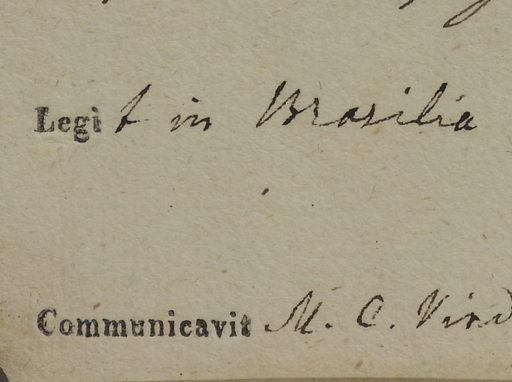 Legit in Brasilia
Communicavit M. C. Vind